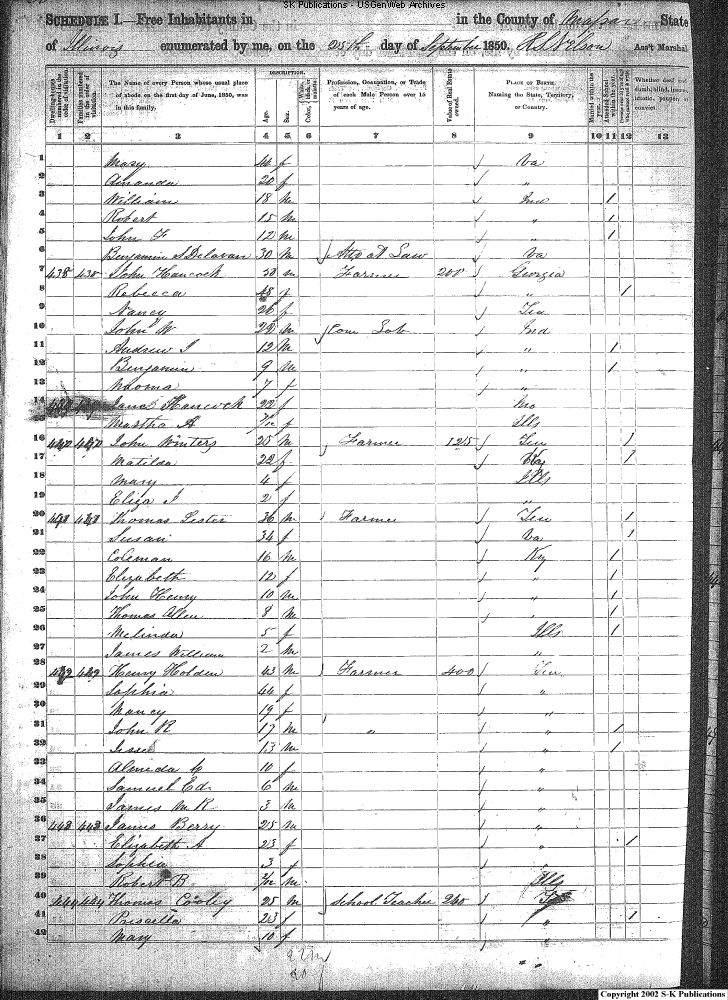 SK Publications - USGenWeb Archives
SCHEDULE I.—Free Inhabitants in in the County of Massac State
of Illinois enumerated by me, on the 25th day of September 1850. Ass't Marshal
DESCRIPTION.
Dwelling-houses numbered in the order of visitation.
Families numbered in the order of visitation.
The Name of every Person whose usual place of abode on the first day of June, 1850, was in this family.
Age.
Sex.
Color, White, black, or mulatto.
Profession, Occupation, or Trade of each Male Person over 15 years of age.
Value of Real Estate owned.
PLACE OF BIRTH. Naming the State, Territory, or Country.
Married within the year.
Attended School within the year.
Whether deaf and dumb, blind, insane, idiotic, pauper, or convict.
1 2 3 4 5 6 7 8 9 10 11 12 13
1 Mary 44 f Va
2 Amanda 20 f "
3 William 18 m Ind 1
4 Robert 15 m " 1
5 John F 12 m " 1
6 Benjamin S Delavan 30 m Att at Law Va
7 438 John Hancock 50 m Farmer 200 Georgia
8 Rebecca 48 f " 1
9 Nancy 26 f Ten
10 John W 22 m Com Lab Ind
11 Andrew J 12 m " 1
12 Benjamin 9 m " 1
13 Naoma 7 f "
14 Jane Hancock 22 f Mo
15 Martha A f Ills
16 440 440 John Winters 25 m Farmer 125 Ten 1
17 Matilda 22 f 1
18 Mary 4 f Ills
19 Eliza J 2 f "
20 Thomas Lester 36 m Farmer Ten 1
21 Susan 34 f Va 1
22 Coleman 16 m Ky 1
23 Elizabeth 12 f " 1
24 John Henry 10 m " 1
25 Thomas Allen 8 m " 1
26 Melinda 5 f Ills 1
27 James William 2 m "
28 442 442 Henry Holden 43 m Farmer 400 Ten
29 Sophia 44 f "
30 Nancy 19 f "
31 John R 17 m " " 1
32 Jesse 13 m " 1
33 Almeda C 10 f "
34 Samuel Ed 6 m "
35 James M R 3 m "
36 443 443 James Berry 25 m "
37 Elizabeth A 23 f " 1
38 Sophia 3 f "
39 Robert B m Ills
40 444 444 Thomas Cooley 25 m School Teacher 240
41 23 f " 1
42 Mary 10 f "
Copyright 2002 S-K Publications